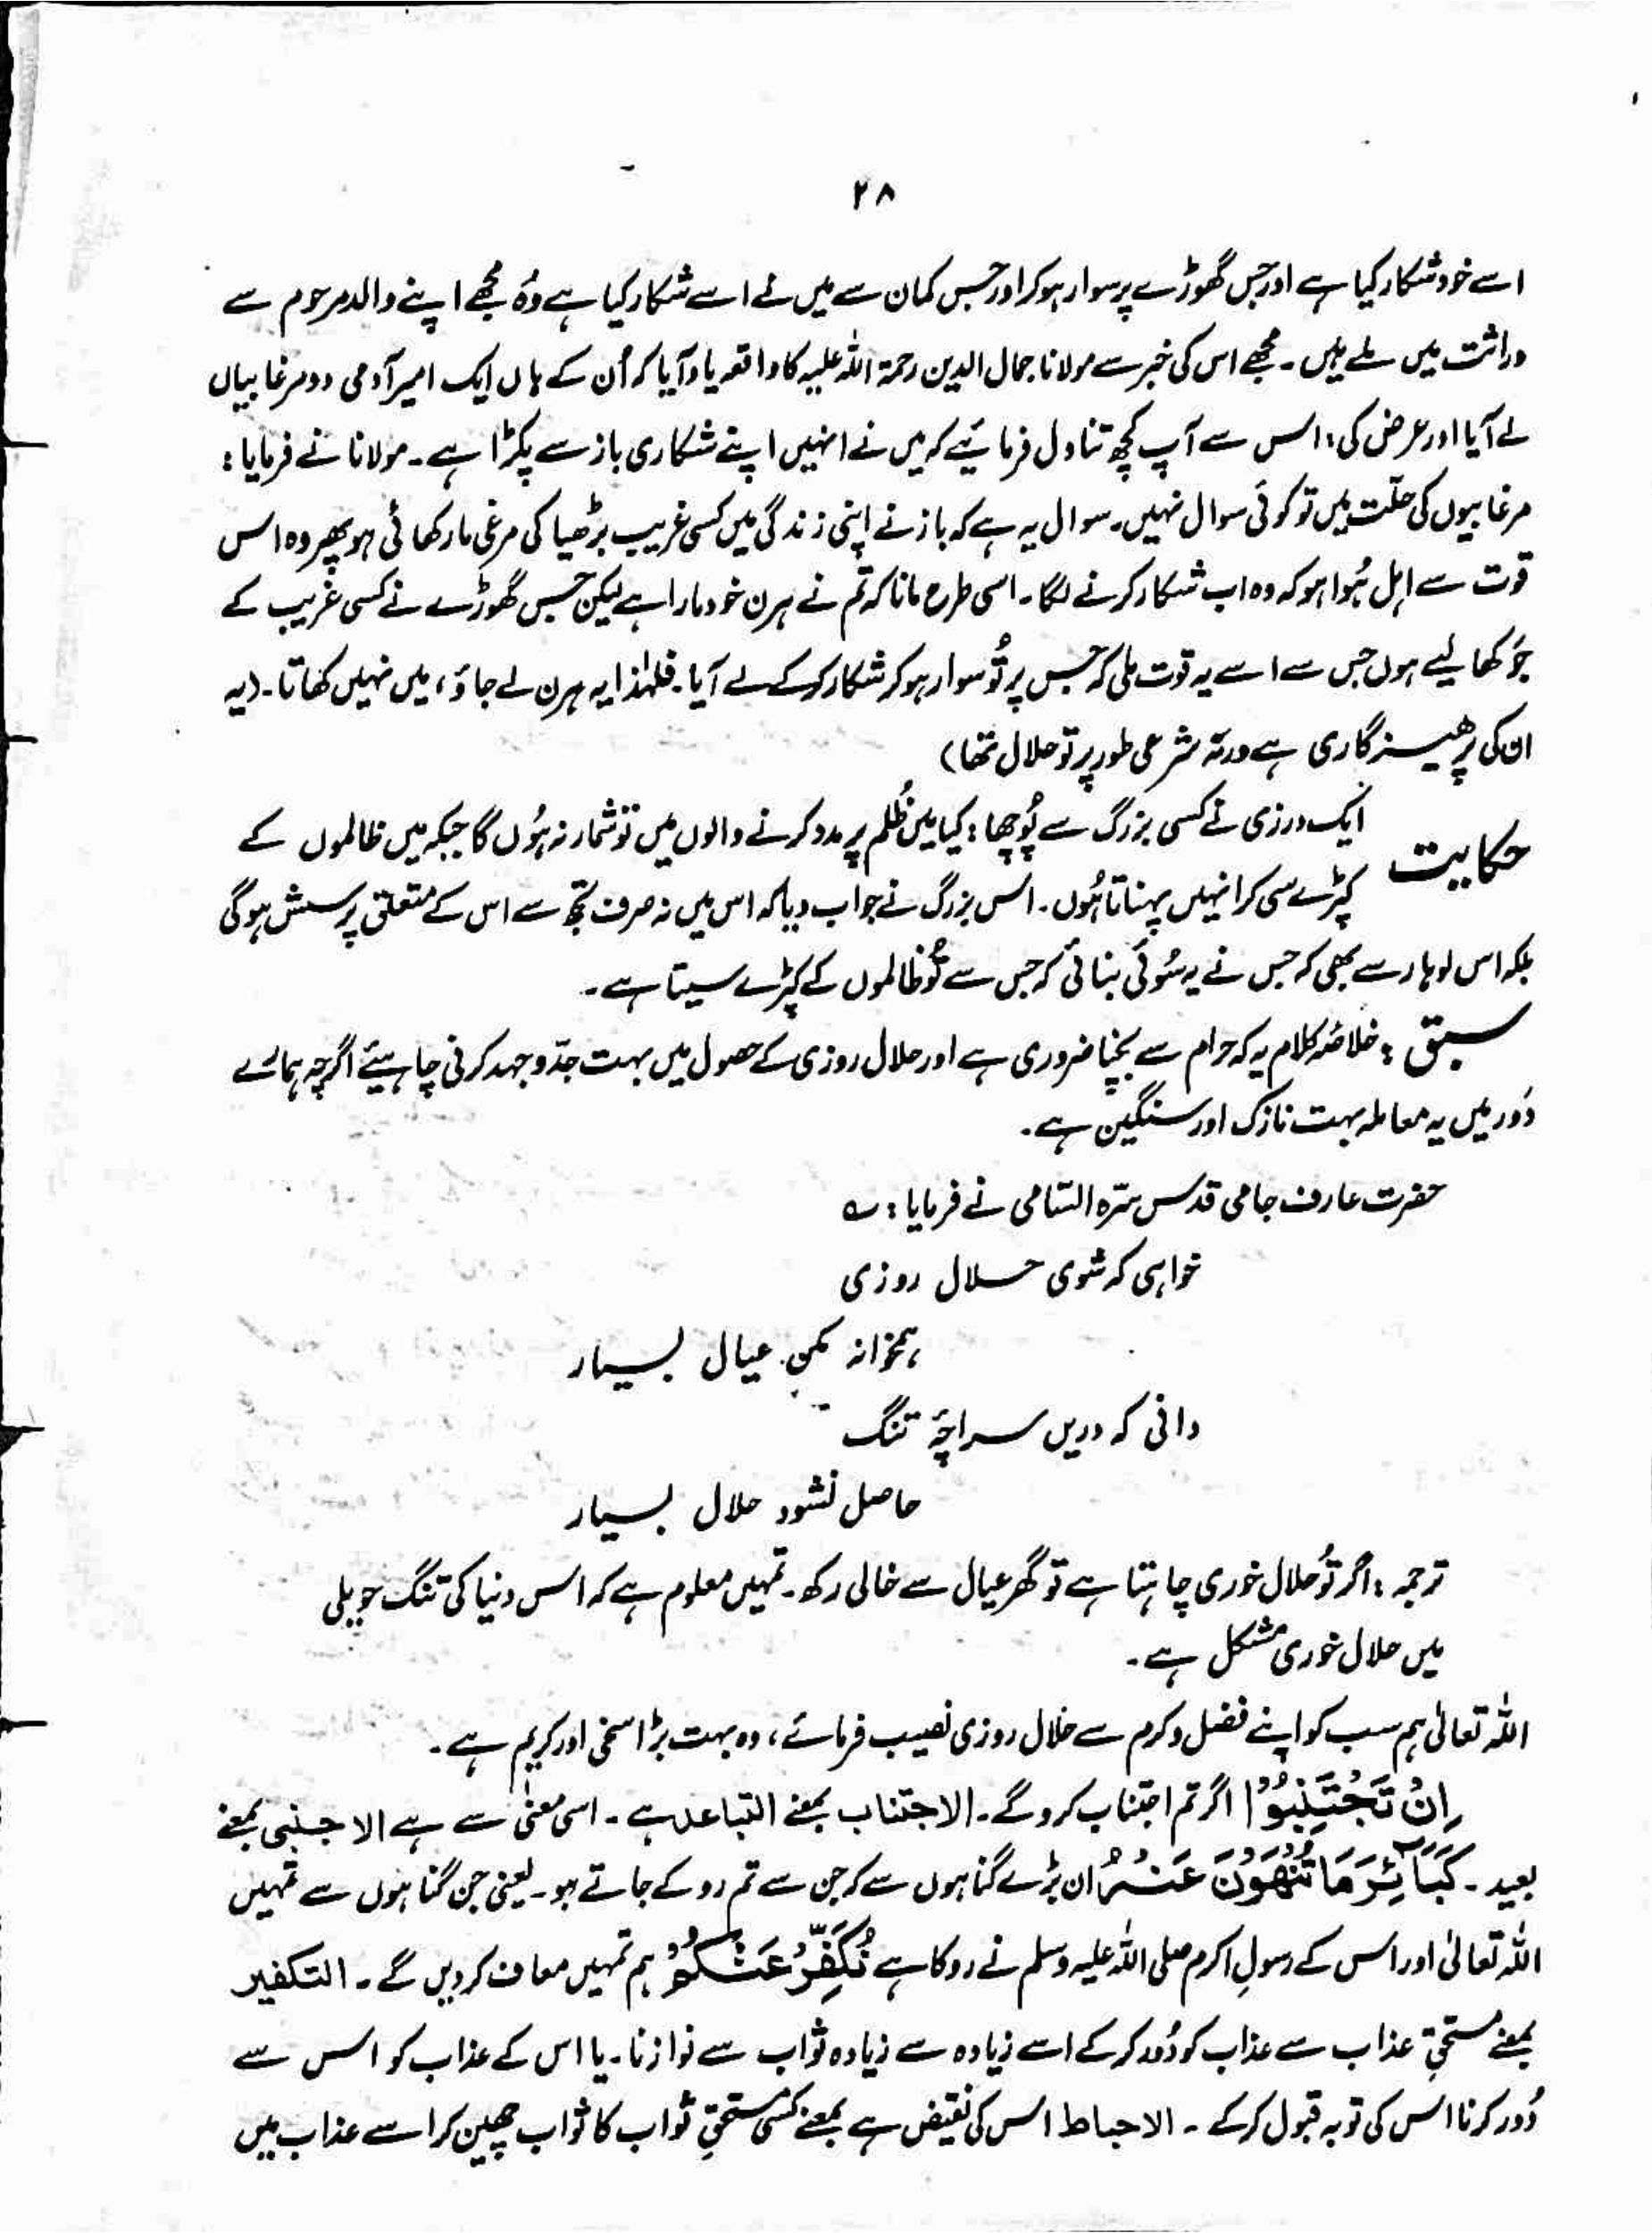 ۲۸
اسے خود شکار کیا ہے اور جس گھوڑے پر سوار ہو کر اور جس کمان سے میں نے اسے شکار کیا ہے وُہ مجھے اپنے والد مرحوم سے
وراثت میں ملے ہیں۔ مجھے اس کی خبر سے مولانا جمال الدین رحمۃ اللہ علیہ کا واقعہ یاد آیا کہ اُن کے ہاں ایک امیر آدمی دو مرغابیاں
لے آیا اور عرض کی: اس سے آپ کچھ تناول فرمائیے کہ میں نے انہیں اپنے شکاری باز سے پکڑا ہے۔ مولانا نے فرمایا:
مرغابیوں کی حلّت میں تو کوئی سوال نہیں۔ سوال یہ ہے کہ باز نے اپنی زندگی میں کسی غریب بڑھیا کی مرغی مار کھائی ہو پھر وہ اس
قوت سے اہل ہُوا ہو کہ وہ اب شکار کرنے لگا۔ اسی طرح مانا کہ تم نے ہرن خود مارا ہے لیکن جس گھوڑے نے کسی غریب کے
جَو کھا لیے ہوں جس سے اسے یہ قوت ملی کہ جس پر تُو سوار ہو کر شکار کر کے لے آیا۔ فلہٰذا یہ ہرن لے جاؤ، میں نہیں کھاتا۔ (یہ
ان کی پرہیزگاری ہے ورنہ شرعی طور پر تو حلال تھا)
حکایت ایک درزی نے کسی بزرگ سے پُوچھا: کیا میں ظُلم پر مدد کرنے والوں میں تو شمار نہ ہُوں گا جبکہ میں ظالموں کے
کپڑے سی کر انہیں پہناتا ہُوں۔ اس بزرگ نے جواب دیا کہ اس میں نہ صرف تجھ سے اس کے متعلق پرسش ہو گی
بلکہ اس لوہار سے بھی کہ جس نے یہ سُوئی بنائی کہ جس سے تُو ظالموں کے کپڑے سیتا ہے۔
سبق : خلاصۂ کلام یہ کہ حرام سے بچنا ضروری ہے اور حلال روزی کے حصول میں بہت جدّوجہد کرنی چاہیئے اگرچہ ہمارے
دَور میں یہ معاملہ بہت نازک اور سنگین ہے۔
حضرت عارف جامی قدس سرّہ السّامی نے فرمایا : ؎
خواہی کہ شوی حلال روزی
ہمخوانہ مکن عیال بسیار
دانی کہ دریں سراچۂ تنگ
حاصل نشود حلال بسیار
ترجمہ : اگر تُو حلال خوری چاہتا ہے تو گھر عیال سے خالی رکھ۔ تمہیں معلوم ہے کہ اس دنیا کی تنگ حویلی
میں حلال خوری مشکل ہے۔
اللہ تعالیٰ ہم سب کو اپنے فضل و کرم سے حلال روزی نصیب فرمائے، وہ بہت بڑا سخی اور کریم ہے۔
اِنْ تَجْتَنِبُوْا اگر تم اجتناب کرو گے۔ الاجتناب بمعنے التباعد ہے۔ اسی معنیٰ سے ہے الاجنبی بمعنے
بعید۔ كَبَآئِرَ مَا تُنْهَوْنَ عَنْهُ ان بڑے گناہوں سے کہ جن سے تم روکے جاتے ہو۔ یعنی جن گناہوں سے تمہیں
اللہ تعالیٰ اور اس کے رسولِ اکرم صلی اللہ علیہ وسلم نے روکا ہے نُكَفِّرْ عَنْكُمْ ہم تمہیں معاف کر دیں گے۔ التکفیر
بمعنے مستحقِ عذاب سے عذاب کو دُور کر کے اسے زیادہ سے زیادہ ثواب سے نوازنا۔ یا اس کے عذاب کو اس سے
دُور کرنا اس کی توبہ قبول کر کے۔ الاحباط اس کی نقیض ہے بمعنے کسی مستحقِ ثواب کا ثواب چھین کر اسے عذاب میں